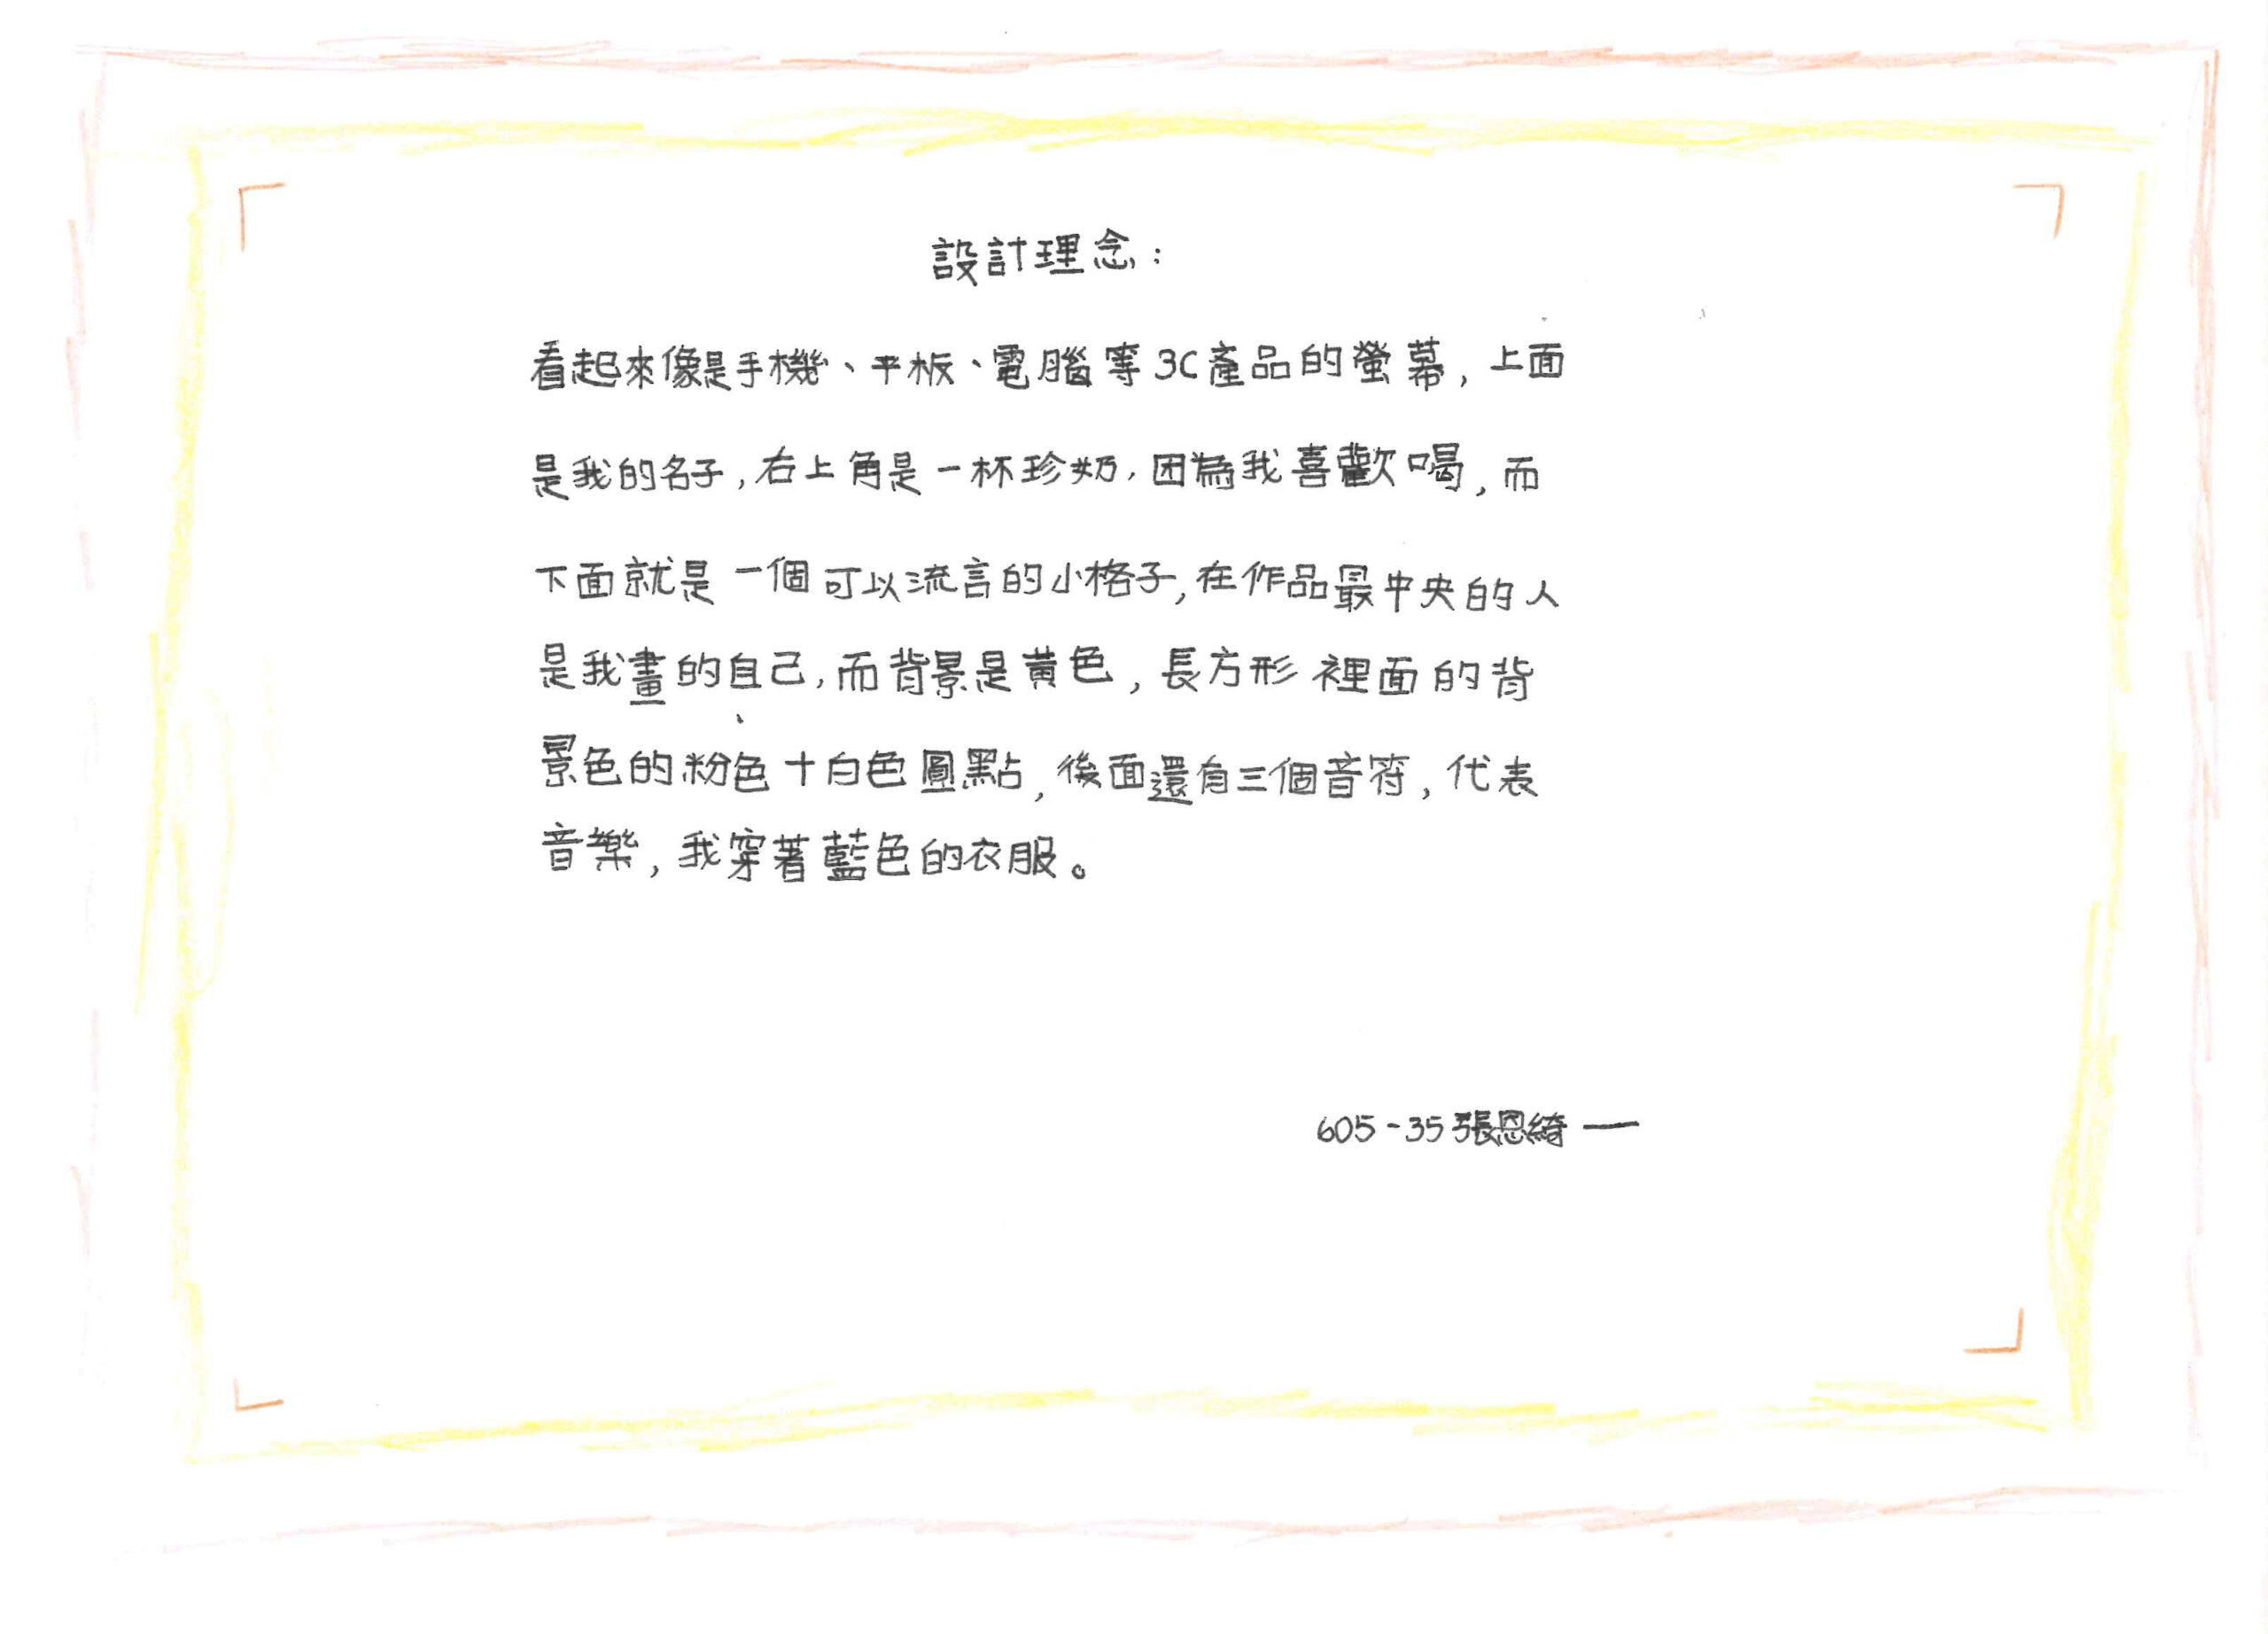 設計理念：
看起來像是手機、平板、電腦等3C產品的螢幕，上面
是我的名子，右上角是一杯珍奶，因為我喜歡喝，而
下面就是一個可以流言的小格子，在作品最中央的人
是我畫的自己，而背景是黃色，長方形裡面的背
景色的粉色+白色圓點，後面還有三個音符，代表
音樂，我穿著藍色的衣服。
605-35張恩綺—